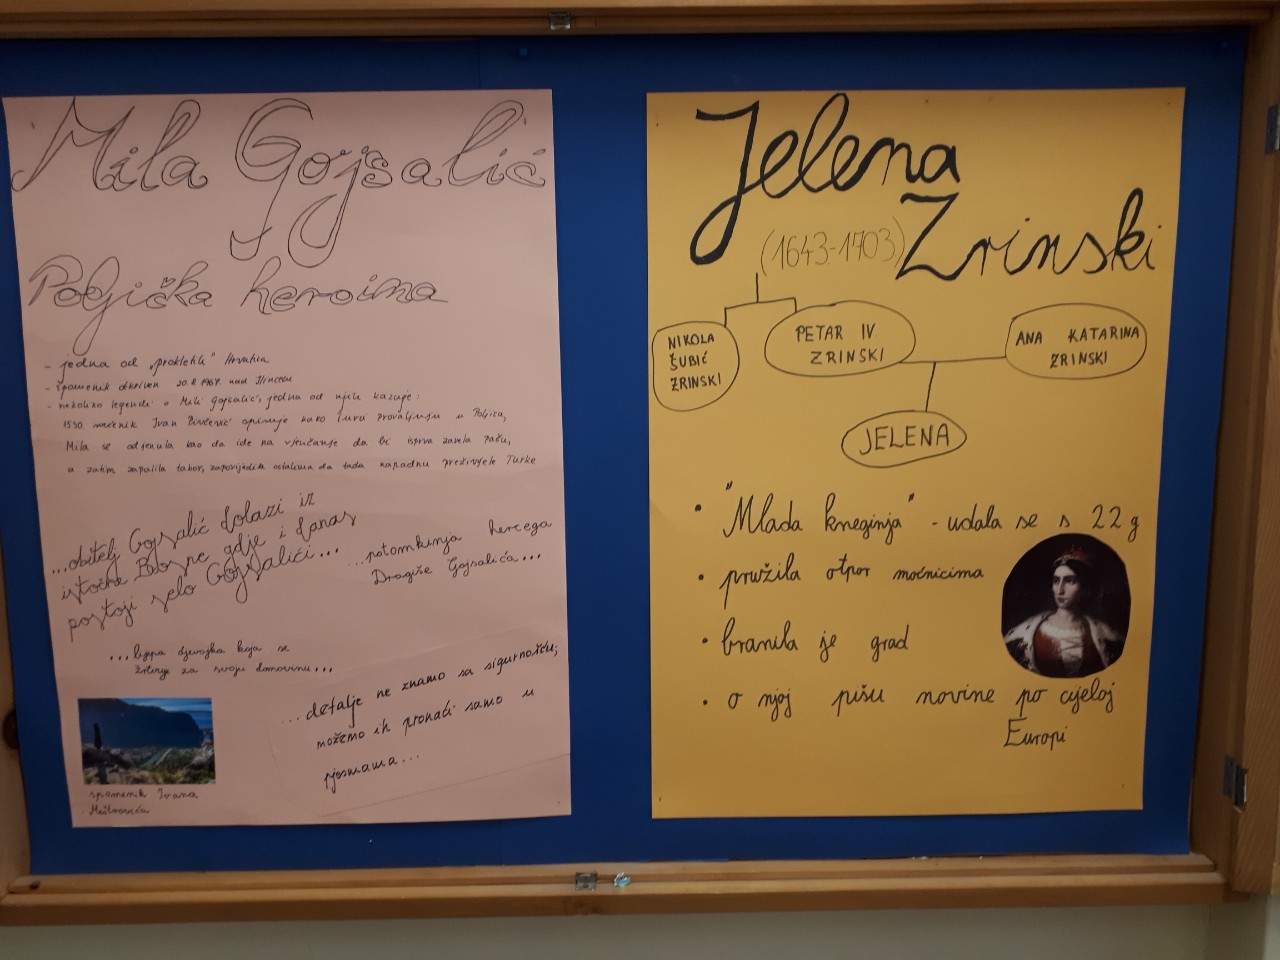 Mila Gojsalić
Poljička heroina
- jedna od „prokletih" Hrvatica
- Spomenik otkriven 20. 8. 1967. nad
- nekoliko legendi o Mili Gojsalić, jedna od njih kazuje:
1530. Ivan opisuje kako Turci provaljuju u Poljica,
Mila se odjenula kao da ide na vjenčanje da bi isprva zavela Pašu,
a zatim zapalila tabor, zapovijedila ostalima da tada napadnu preživjele Turke
...obitelj Gojsalić dolazi iz
istočne Bosne gdje i danas
postoji selo Gojsalići...
...potomkinja hercega
Dragiše Gojsalića...
...lijepa djevojka koja se
žrtvuje za svoju domovinu...
...detalje ne znamo sa sigurnošću;
možemo ih pronaći samo u
pjesmama...
spomenik Ivana
Meštrovića
Jelena
Zrinski
(1643-1703)
NIKOLA
ŠUBIĆ
ZRINSKI
PETAR IV.
ZRINSKI
ANA KATARINA
ZRINSKI
JELENA
• "Mlada kneginja" - udala se s 22 g
• pružila otpor moćnicima
• branila je grad
• o njoj pišu novine po cijeloj
Europi